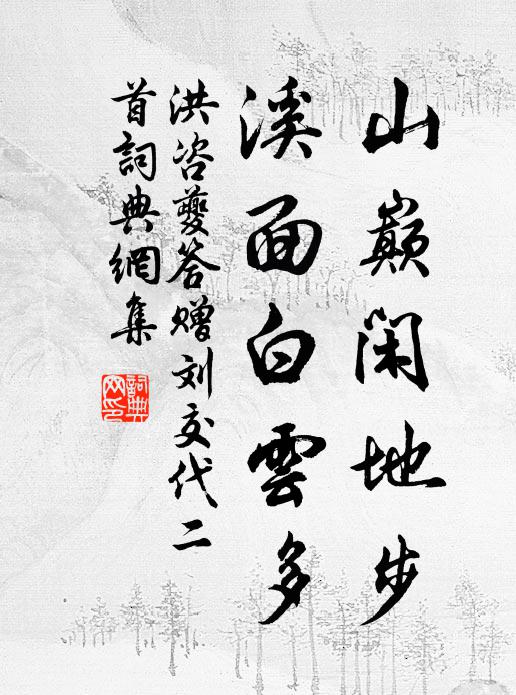 山巅閑地步
溪面白雲多
洪咨夔答赠刘交代二
首詞典網集
詞典
网印